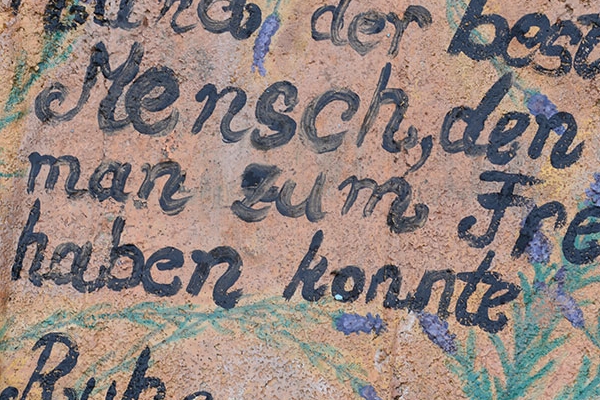 der best
Mensch, den
man zum Fre
haben konnte
Ruhe